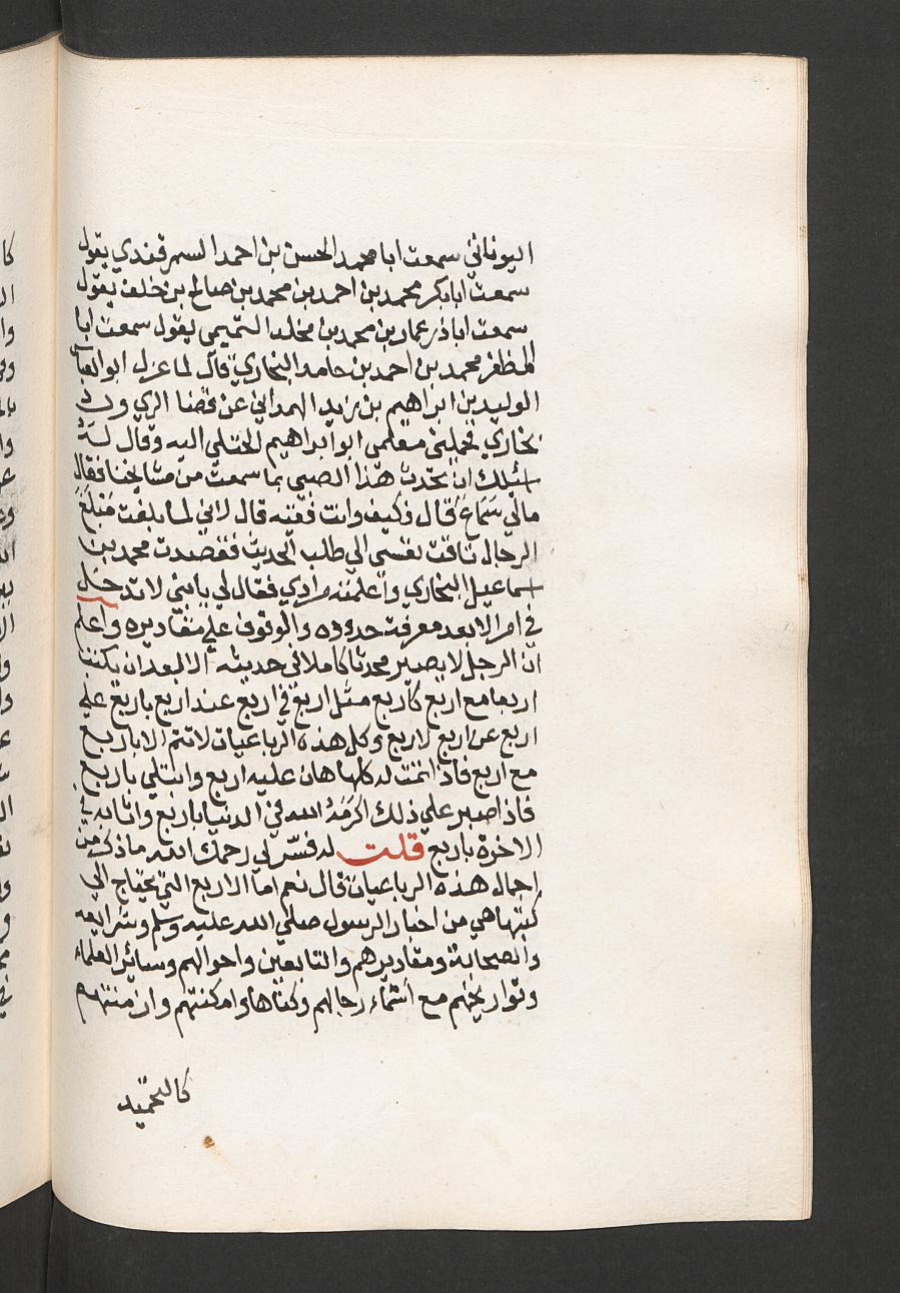 اليوناني سمعت ابا محمد الحسن بن احمد السمرقندي يقول
سمعت ابابكر محمد بن احمد بن محمد بن صالح بن خلف يقول
سمعت اباذر عمار بن محمد بن مخلد التميمي يقول سمعت ابا
المظفر محمد بن احمد بن حامد البخاري قال لما عزل ابو العباس
الوليد بن ابراهيم بن زيد الهمداني عن قضا الري ورد
بخاري فحملني معلمي ابو ابراهيم الختلي اليه وقال له
اسئلك ان تحدث هذا الصبي بما سمعت من مشايخنا فقال
مالي سماع قال فكيف وانت فقيه قال لاني لما بلغت مبلغ
الرجال تاقت نفسي الي طلب الحديث فقصدت محمد بن
اسماعيل البخاري واعلمته مرادي فقال لي يا بني لا تدخل
في امر الا بعد معرفة حدوده والوقوف علي مقاديره واعلم
ان الرجل لا يصير محدثا كاملا في حديثه الا بعد ان يكتب
اربعا مع اربع كاربع مثل اربع في اربع عند اربع باربع علي
اربع عن اربع لاربع وكل هذه الرباعيات لا تتم الا باربع
مع اربع فاذا تمت له كلها هان عليه اربع وابتلي باربع
فاذا صبر علي ذلك اكرمه الله في الدنيا باربع واثابه في
الاخرة باربع قلت له فسر لي رحمك الله ما ذكرت من
اجمال هذه الرباعيات قال نعم اما الاربع التي يحتاج الي
كتبها هي من اخبار الرسول صلي الله عليه وسلم وشرايعه
والصحابة ومقاديرهم والتابعين واحوالهم وسائر العلماء
وتواريخهم مع اسماء رجالهم وكناها وامكنتهم وازمنتهم
كالتحميد